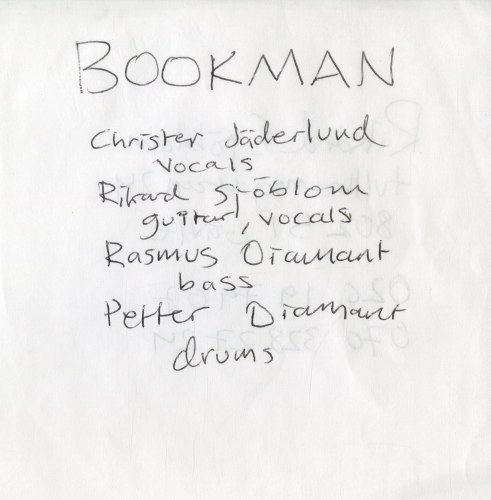 BOOKMAN
Christer Jäderlund
vocals
Rikard Sjöblom
guitar, vocals
Rasmus Diamant
bass
Petter Diamant
drums